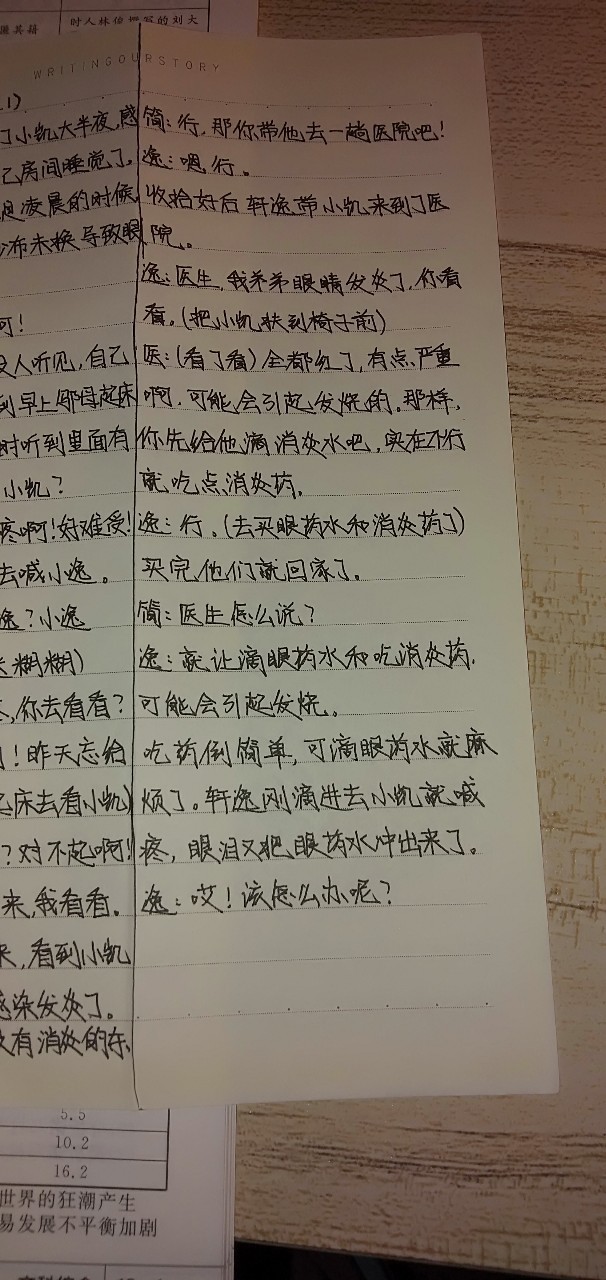 时人林俊撰写的刘大
WRITINGOURSTORY
1)
了小凯大半夜,感
己房间睡觉了。
凌晨的时候,
布未换导致眼
可!
没人听见,自己
到早上邪母起床
时听到里面有
小凯?
疼啊!好难受!
去喊小逸。
逸?小逸
糊糊)
,你去看看?
!昨天忘给
起床去看小凯)
?对不起啊!
来,我看看。
来,看到小凯
感染发炎了。
有消炎的东
简:行,那你带他去一趟医院吧!
逸:嗯,行。
收拾好后轩逸带小凯来到了医
院。
逸:医生,我弟弟眼睛发炎了,你看
看。(把小凯扶到椅子前)
医:(看了看)全都红了,有点严重
啊,可能会引起发烧的。那样,
你先给他滴消炎水吧,实在不行
就吃点消炎药。
逸:行。(去买眼药水和消炎药了)
买完他们就回家了。
简:医生怎么说?
逸:就让滴眼药水和吃消炎药,
可能会引起发烧。
吃药倒简单,可滴眼药水就麻
烦了。轩逸刚滴进去小凯就喊
疼,眼泪又把眼药水冲出来了。
逸:哎!该怎么办呢?
5.5
10.2
16.2
世界的狂潮产生
易发展不平衡加剧